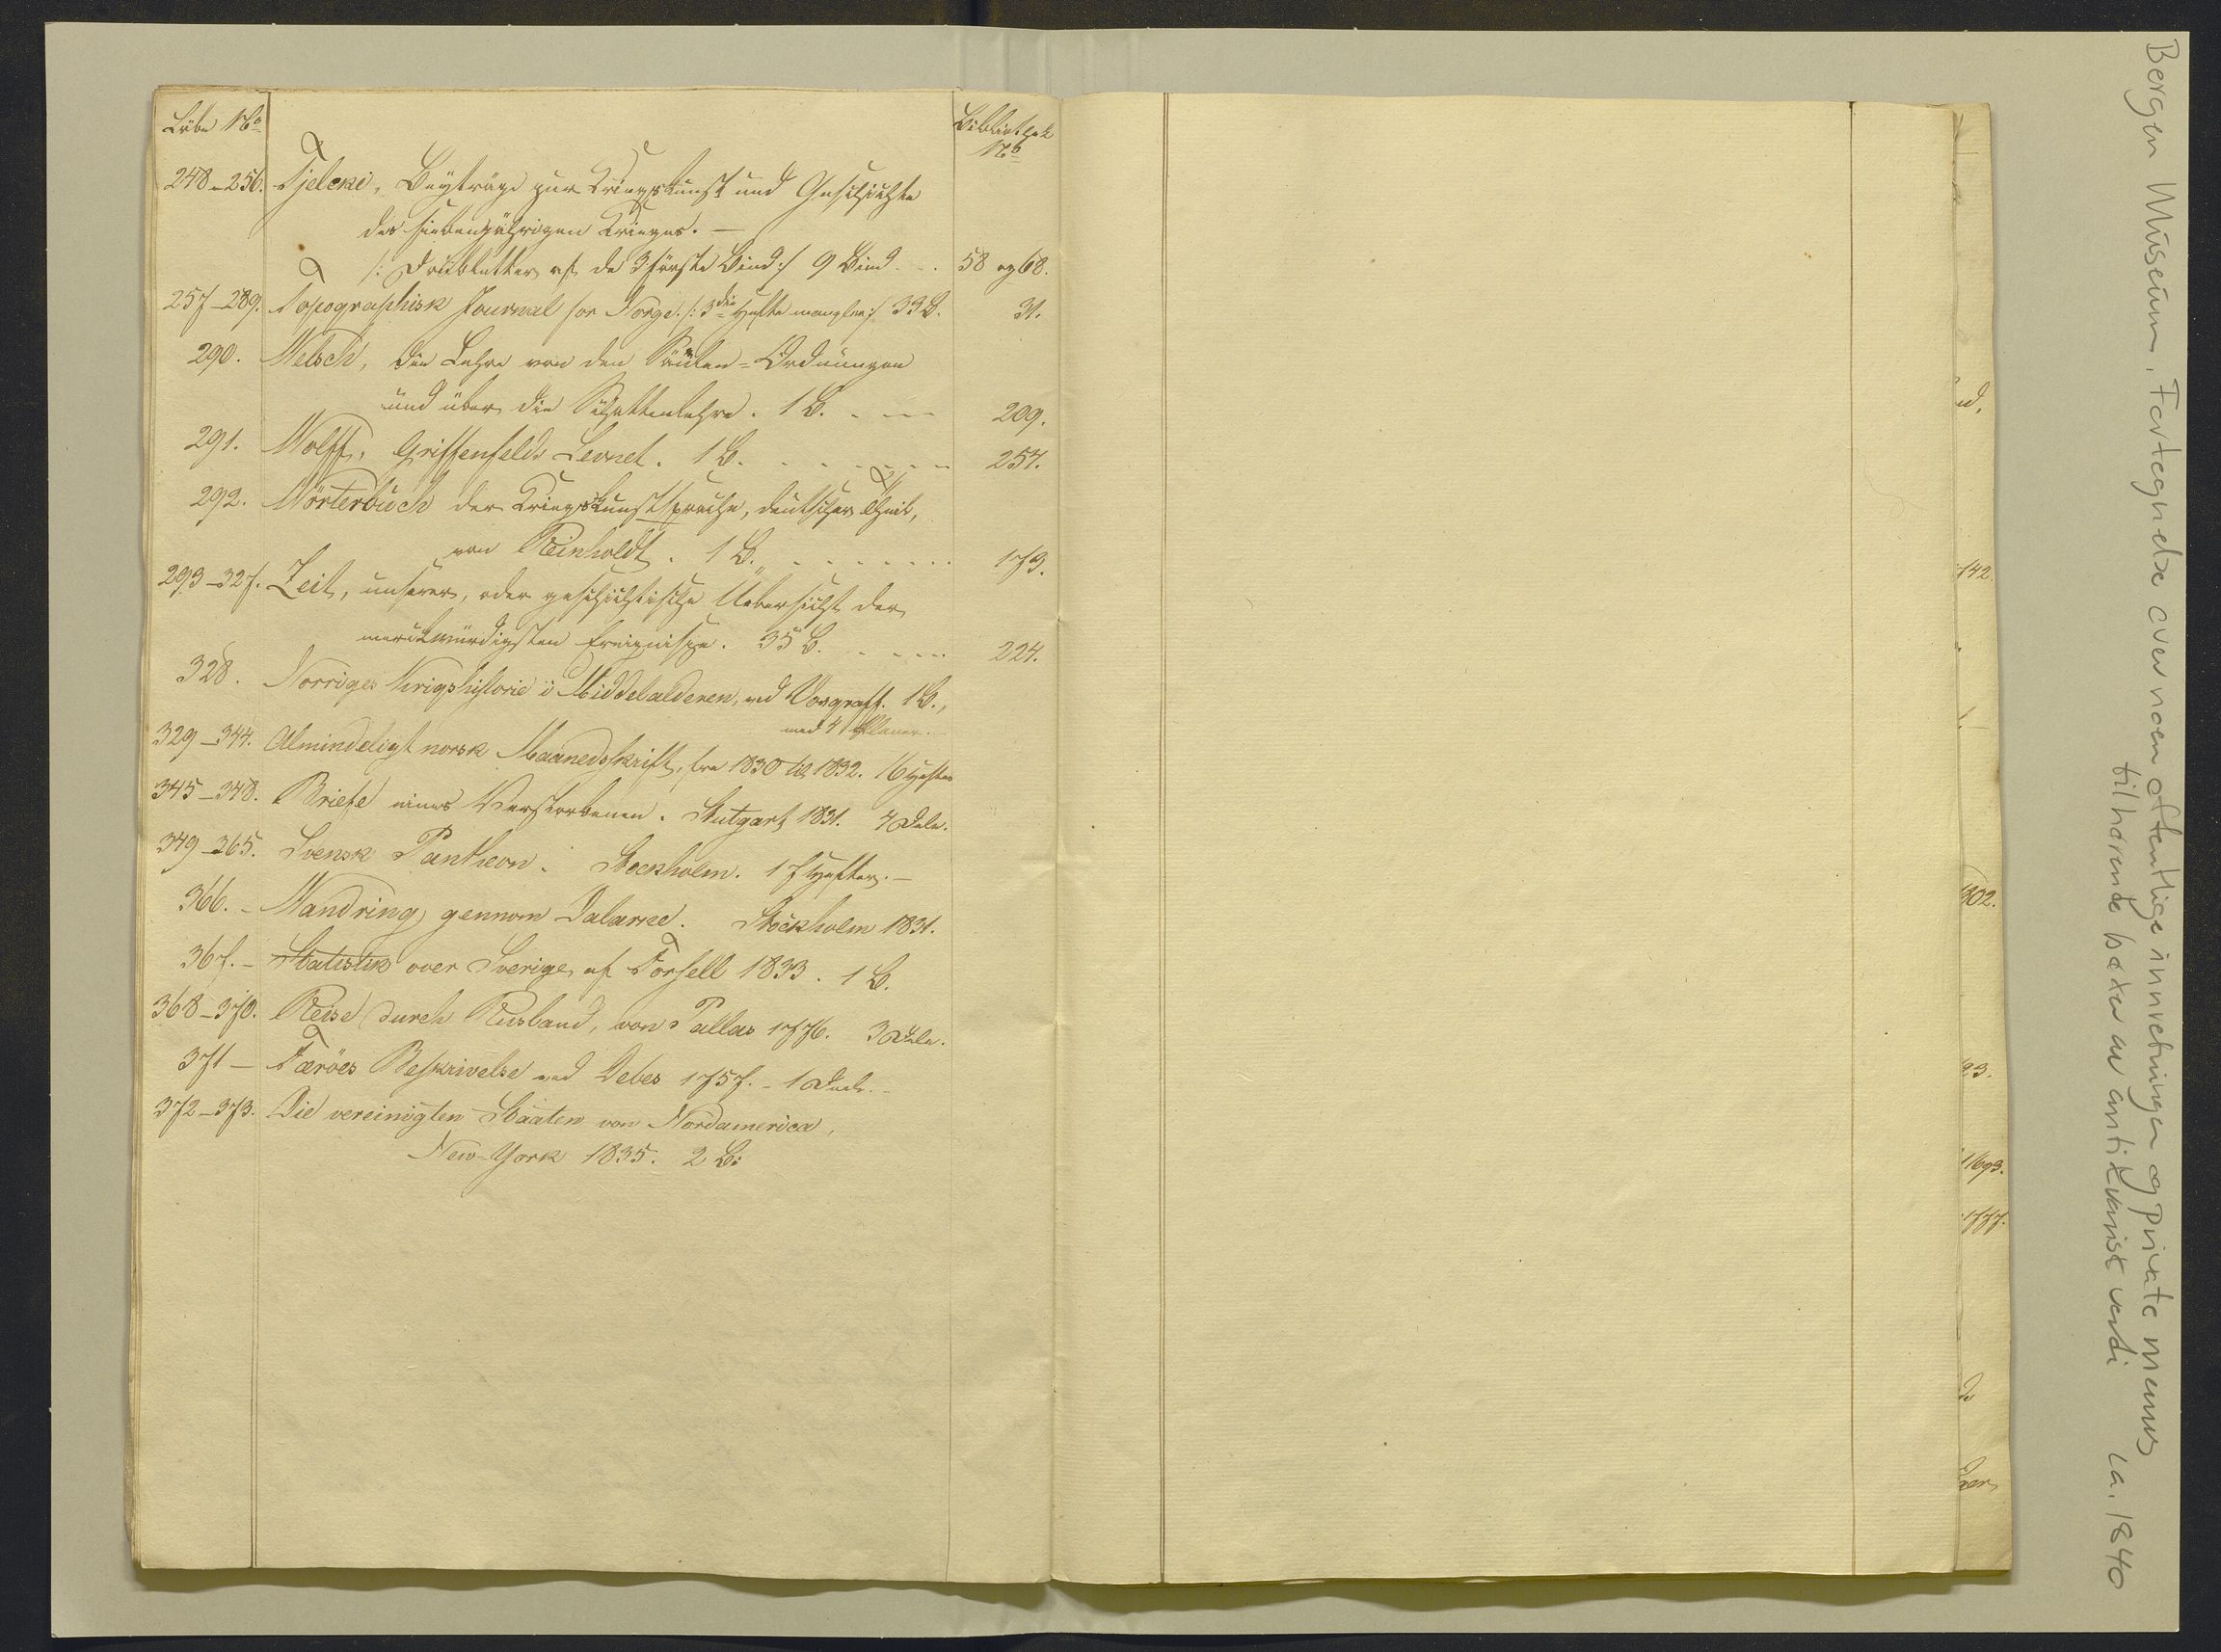 Löbe No
Bibliothek
No
248-256. Tjelcke, Beyträge zur Kriegskunst und Geschichte
des siebenjährigen Krieges. —
/: af de 3 förste Bind :/ 9 Bind. 58 og 68.
257-289. Topographisk Journal for Norge. /: 3die Hefte mangler :/ 33 B. 31.
290. Welsch, die Lehre von den Säulen-Ordnungen
und über die Schattenlehre. 1 B. 209.
291. Wolff, Griffenfelds Levnet. 1 B. 257.
292. Wörterbuch der Kriegskunstsprache, deutscher Theil,
von Reinholdt. 1 B. 173.
293-327. Zeit, unserer, oder geschichtische Uebersicht der
merckwürdigsten Ereignisse. 35 B. 224.
328. Norriges Krigshistorie i Middelalderen, ved Vosgraff. 1 B.,
med 4 Planer.
329-344. Almindeligt norsk Maanedsskrift, fra 1830 til 1832. 16 Hefter
345-348. Briefe eines Verstorbenen. Stutgart 1831. 4 Dele.
349-365. Svensk Pantheon. Stockholm. 17 Hefter. —
366. - Wandring gennom Dalarne. Stockholm 1831.
367. - Statistik over Sverige, af Forsell 1833. 1 B.
368-370. Reise durch Rusland, von Pallas 1776. 3 Dele.
371 — Færöes Beskrivelse ved Debes 1757. - 1 Deel. -
372-373. Die vereinigten Staaten von Nordamerica,
New-York 1835. 2 B:
ud,
142.
302.
23.
1693.
1777.
Bergen Museum, Fortegnelse over noen offentlige innretninger og private menns
tilhørende bøker av antikvarisk verdi ca. 1840